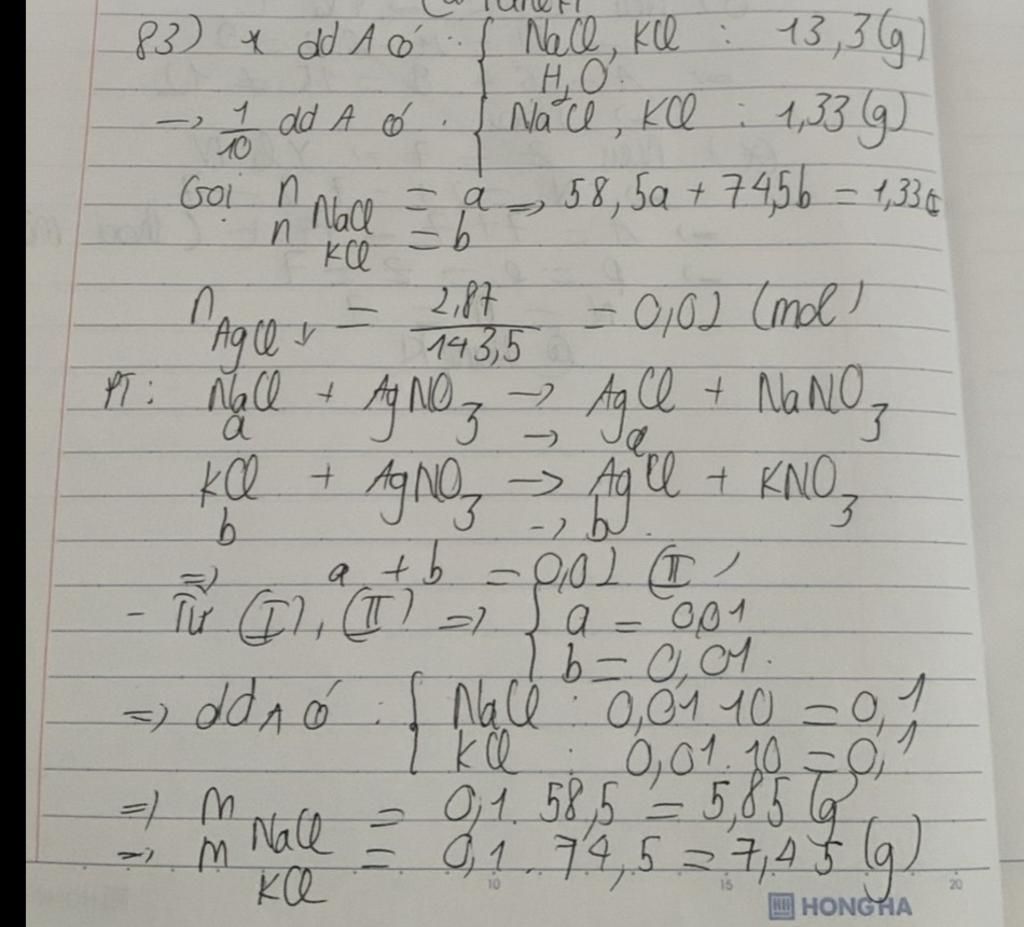 83) * dd A có : { NaCl, KCl : 13,3 (g)
H₂O
→ 1/10 dd A có : { NaCl, KCl : 1,33 (g)
Gọi n NaCl = a => 58,5a + 74,5b = 1,33
n KCl = b
n AgCl ↓ = 2,87/143,5 = 0,02 (mol)
PT : NaCl + AgNO₃ → AgCl + NaNO₃
a → a
KCl + AgNO₃ → AgCl + KNO₃
b → b
=> a + b = 0,02 (II)
- Từ (I), (II) => { a = 0,01
b = 0,01.
=> dd A có : { NaCl : 0,01.10 = 0,1
KCl : 0,01.10 = 0,1
=> m NaCl = 0,1. 58,5 = 5,85 (g
=> m KCl = 0,1. 74,5 = 7,45 (g)
10 15 20
HONG HA